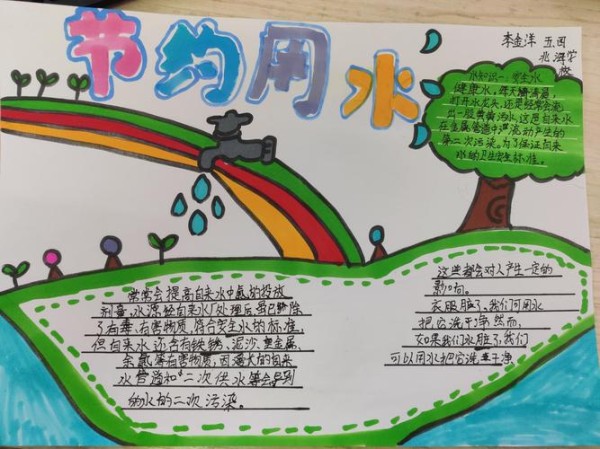 节约用水
李金洋 五四
水知识—卫生水
健康水，每天清晨，
打开水龙头，还是经常会流
出一股黄黄污水，这是自来水
在金属管道中滞流动产生的
第二次污染。为了保证自来
水的卫生安标准。
常常会提高自来水中氯的投放
剂量，水源经自来水厂处理后，虽已除
了有毒、有害物质，符合卫生水的标准，
但自来水还含有铁锈、泥沙、重金属、
余氯等有害物质，因漫长的自来
水管道和"二次供水等会导到
纳水的二次污染。
这些都会对人产生一定的
影响。
衣服脏了，我们可用水
把它洗干净，然而，
如果我们水脏了，我们
可以用水把它洗干净